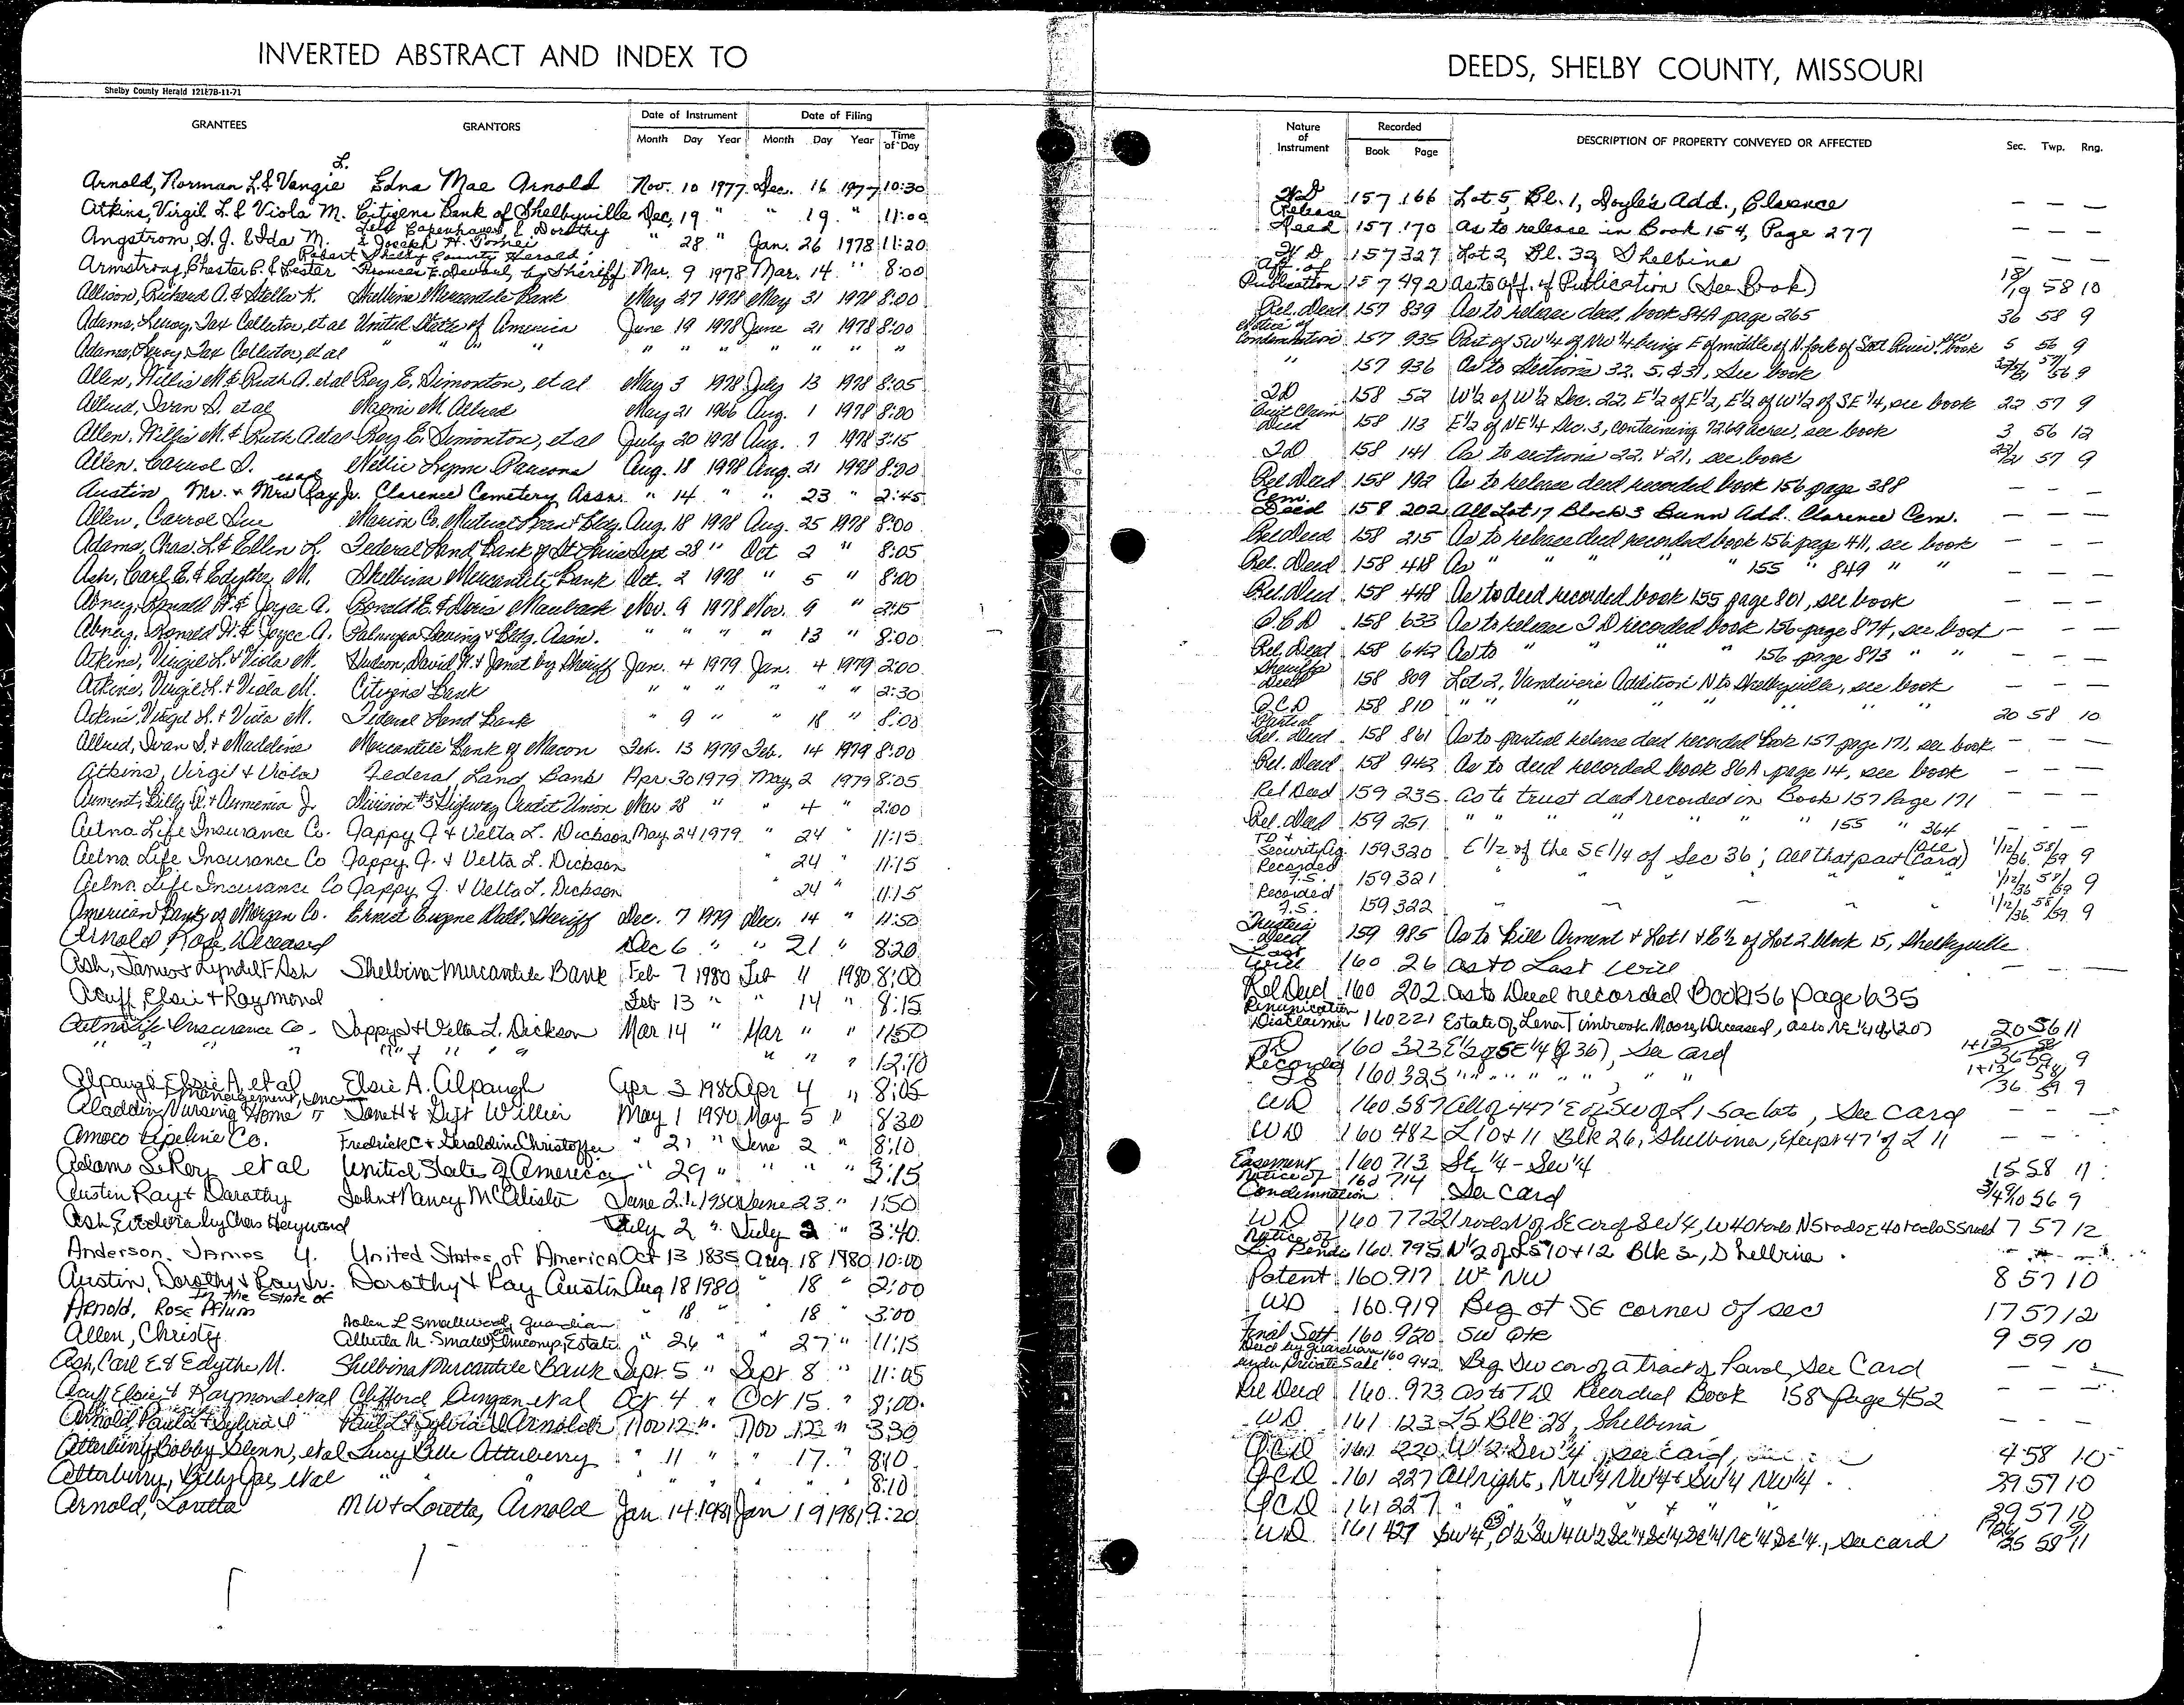 INVERTED ABSTRACT AND INDEX TO
Shelby County Herald 121E7B-11-71
GRANTEES GRANTORS Date of Instrument Date of Filing
Month Day Year Month Day Year Time of Day
L.
Arnold, Norman L. & Vangie Edna Mae Arnold Nov. 10 1977 Dec. 16 1977 10:30
Atkins, Virgil L. & Viola M. Citizens Bank of Shelbyville Dec. 19 " " 19 " 11:00
Angstrom, S.J. & Ida M. " 28 " Jan. 26 1978 11:20
Armstrong, Chester C. & Lester by Sheriff Mar. 9 1978 Mar. 14 " 8:00
Allison, Richard A. & Stella K. Shelbina Mercantile Bank May 27 1978 May 31 1978 8:00
Adams, Leroy, Tax Collector, et al United State of America June 19 1978 June 21 1978 8:00
Adams, Leroy, Tax Collector, et al " " " " " " " " " " "
Allen, Willis M. & Ruth A. et al Roy E. Simonton, et al May 3 1978 July 13 1978 8:05
Allred, Ivan S. et al M. Allred May 21 1966 Aug. 1 1978 8:00
Allen, Willis M. & Ruth A et al Roy E. Simonton, et al July 20 1978 Aug. 7 1978 3:15
Allen, Carrol S. Nellie Lynne Parsons Aug. 18 1978 Aug. 21 1978 8:20
Austin Mr. & Mrs Ray Jr. Clarence Cemetery Assn. " 14 " " 23 " 2:45
Allen, Carrol Sue Marion Co. Mutual Loan & Bldg. Aug. 18 1978 Aug. 25 1978 8:00
Adams, Chas. L. & Ellen L. Federal Land Bank of St Louis Sept 28 " Oct 2 " 8:05
Ash, Carl E. & Edythe M. Shelbina Mercantile Bank Oct. 2 1978 " 5 " 8:00
Abney, Ronald H. & Joyce A. Ronald E. & Doris Maubach Nov. 9 1978 Nov. 9 " 2:15
Abney, Ronald H. & Joyce A. Palmyra Saving & Bldg. Assn. " " " " 13 " 8:00
Atkins, Virgil L. & Viola M. Hudson, David W. & Janet by Sheriff Jan. 4 1979 Jan. 4 1979 2:00
Atkins, Virgil L. & Viola M. Citizens Bank " " " " " " 2:30
Atkins, Virgil L. & Viola M. Federal Land Bank " 9 " " 18 " 8:00
Allred, Ivan S. & Madeline Mercantile Bank of Macon Feb. 13 1979 Feb. 14 1979 8:00
Atkins, Virgil & Viola Federal Land Bank Apr 30 1979 May 2 1979 8:05
Arment, Billy A. & Armenia J. Division #3 Highway Credit Union Mar 28 " " 4 " 2:00
Aetna Life Insurance Co. Jappy J. & Velta L. Dickson May 24 1979 " 24 " 11:15
Aetna Life Insurance Co Jappy J. & Velta L. Dickson " 24 " 11:15
Aetna Life Insurance Co Jappy J. & Velta L. Dickson " 24 " 11:15
American Bank of Morgan Co. Ernest Eugene Dill, Sheriff Dec. 7 1979 Dec. 14 " 11:50
Arnold, Rose, Deceased Dec 6 " " 21 " 8:20
Ash, James & Lyndell F Ash Shelbina Mercantile Bank Feb 7 1980 Feb 11 1980 8:00
Acuff, Elsie & Raymond Feb 13 " " 14 " 8:15
Aetna Life Insurance Co. Jappy J & Velta L. Dickson Mar 14 " Mar " " 11:50
" " " " " " " " " " " 12:10
Alpaugh, Elsie A, et al Elsie A. Alpaugh Apr. 3 1980 Apr 4 " 8:05
Management, Inc
Aladdin Nursing Home Janett & Dift Willier May 1 1980 May 5 " 8:30
Amoco Pipeline Co. Fredrick C & Geraldine Christoffer " 21 " June 2 " 8:10
Adams LeRoy et al United States of America " 29 " " " " 3:15
Austin Ray & Dorathy John & Nancy McAlister June 21, 1980 June 23 " 1:50
Ash, by Chas Heyward July 2 " July 2 " 3:40
Anderson, James Y. United States of America Oct 13 1835 Aug. 18 1980 10:00
Austin, Dorothy & Ray Jr. Dorothy & Ray Austin Aug 18 1980 " 18 " 2:00
In the Estate of
Arnold, Rose Aflum " 18 " " 18 " 3:00
Allen, Christy Nolen L Smallwood, Guardian Alberta M. Smallwood, Incomp. Estate " 26 " " 27 " 11:15
Ash, Carl E & Edythe M. Shelbina Mercantile Bank Sept 5 " Sept 8 " 11:05
Acuff Elsie & Raymond et al Clifford Dungan et al Oct. 4 " Oct 15 " 8:00
Arnold, Paul L & Sylvia D Paul L & Sylvia D Arnold Nov 12 " Nov 12 " 3:30
Atterberry Bobby Glenn, et al Lucy Belle Atterberry " 11 " " 17 " 8:10
Atterberry, Billy Joe, et al " " " " " " " " 8:10
Arnold, Loretta M W & Loretta, Arnold Jan 14 1981 Jan 19 1981 9:20
DEEDS, SHELBY COUNTY, MISSOURI
Nature of Instrument Recorded Book Page DESCRIPTION OF PROPERTY CONVEYED OR AFFECTED Sec. Twp. Rng.
WD 157 166 Lot 5, Bl. 1, Doyle's Add., Clarence — — —
Release Deed 157 170 As to release in Book 154, Page 277 — — —
WD 157 327 Lot 2, Bl. 32, Shelbina — — —
Aff. of Publication 157 492 As to Aff. of Publication (See Book) 18/19 58 10
Rel. Deed 157 839 As to release deed, book 84A page 265 36 58 9
Notice of Condemnation 157 935 Part of SW 1/4 of NW 1/4 being E of middle of N. fork of Salt River, see book 5 56 9
" 157 936 As to Sections 32, 5, & 31, see book
TD 158 52 W 1/2 of W 1/2 Sec. 22, E 1/2 of E 1/2, E 1/2 of W 1/2 of SE 1/4, see book 22 57 9
Quit Claim Deed 158 113 E 1/2 of NE 1/4 Sec. 3, containing 72.69 acres, see book 3 56 12
TD 158 141 As to sections 22, & 21, see book 22/21 57 9
Rel Deed 158 192 As to release deed recorded book 156 page 388 — — —
Cem. Deed 158 202 All Lot 17 Block 3 Bunn Add. Clarence Cem. — — —
Rel Deed 158 215 As to release deed recorded book 156 page 411, see book — — —
Rel. Deed 158 418 As " " " " " 155 " 849 " " — — —
Rel Deed 158 448 As to deed recorded book 155 page 801, see book — — —
Q.C.D. 158 633 As to release TD recorded book 156 page 874, see book — — —
Rel. Deed 158 642 As to " " " " 156 page 873 " " — — —
Sheriffs Deed 158 809 Lot 2, Vandivers Addition N to Shelbyville, see book — — —
QCD 158 810 " " " " " " " "
Partial Rel. Deed 158 861 As to partial release deed recorded book 157 page 171, see book 20 58 10
Rel. Deed 158 942 As to deed recorded book 86A page 14, see book — — —
Rel Deed 159 235 As to trust deed recorded in Book 157 Page 171 — — —
Rel. Deed 159 251 " " " " " " 155 " 364 — — —
TD & Security Ag. 159 320 E 1/2 of the SE 1/4 of Sec 36; All that part (See Card) 1/12/36 58/59 9
Recorded F.S. 159 321 " " " " 1/12/36 58/59 9
Recorded F.S. 159 322 " " " " 1/12/36 58/59 9
Trustees Deed 159 985 As to Bill Arment & Lot 1 & E 1/2 of Lot 2 block 15, Shelbyville
Last Will 160 26 As to Last Will — — —
Rel Deed 160 202 As to Deed recorded Book 156 page 635
Renunication Disclaimer 160 221 Estate of Lena Timbrook Moore, Deceased, as to NE 1/4 of (20) 20 56 11
TD 160 323 E 1/2 of SE 1/4 (of 36), See Card 1+12/36 58/59 9
Recorded FS 160 325 " " " " " " " " 1+12/36 58/59 9
WD 160 387 All of 447' E of SW of L 1 Sac lots, See Card — — —
WD 160 482 L 10 & 11 Blk 26, Shelbina, Except 47' of L 11 — — —
Easement 160 713 SE 1/4 - SW 1/4 15 58 11
Notice of Condemnation 160 714 See Card 3/4 9/10 56 9
WD 160 772 21 rods N of SE cor of SW 1/4, W 40 rods N 5 rods E 40 rods S 5 rods 7 57 12
Notice of Lis Pendis 160 795 N 1/2 of Ls 10 & 12 Blk 2, Shelbina — — —
Patent 160 917 W 2 NW 8 57 10
WD 160 919 Beg at SE corner of sec 17 57 12
Final Sett. 160 920 SW Qtr 9 59 10
Deed by guardian under Private Sale 160 942 Beg SW cor of a tract of land, See Card — — —
Rel Deed 160 973 As to TD Recorded Book 158 Page 452 — — —
WD 161 123 L 5 Blk 28, Shelbina — — —
QCD 161 220 W 1/2 SW 1/4, see card 4 58 10
QCD 161 227 All right, NW 1/4 NW 1/4 & SW 1/4 NW 1/4 29 57 10
QCD 161 227 " " " & " " 29 57 10
WD 161 427 see card